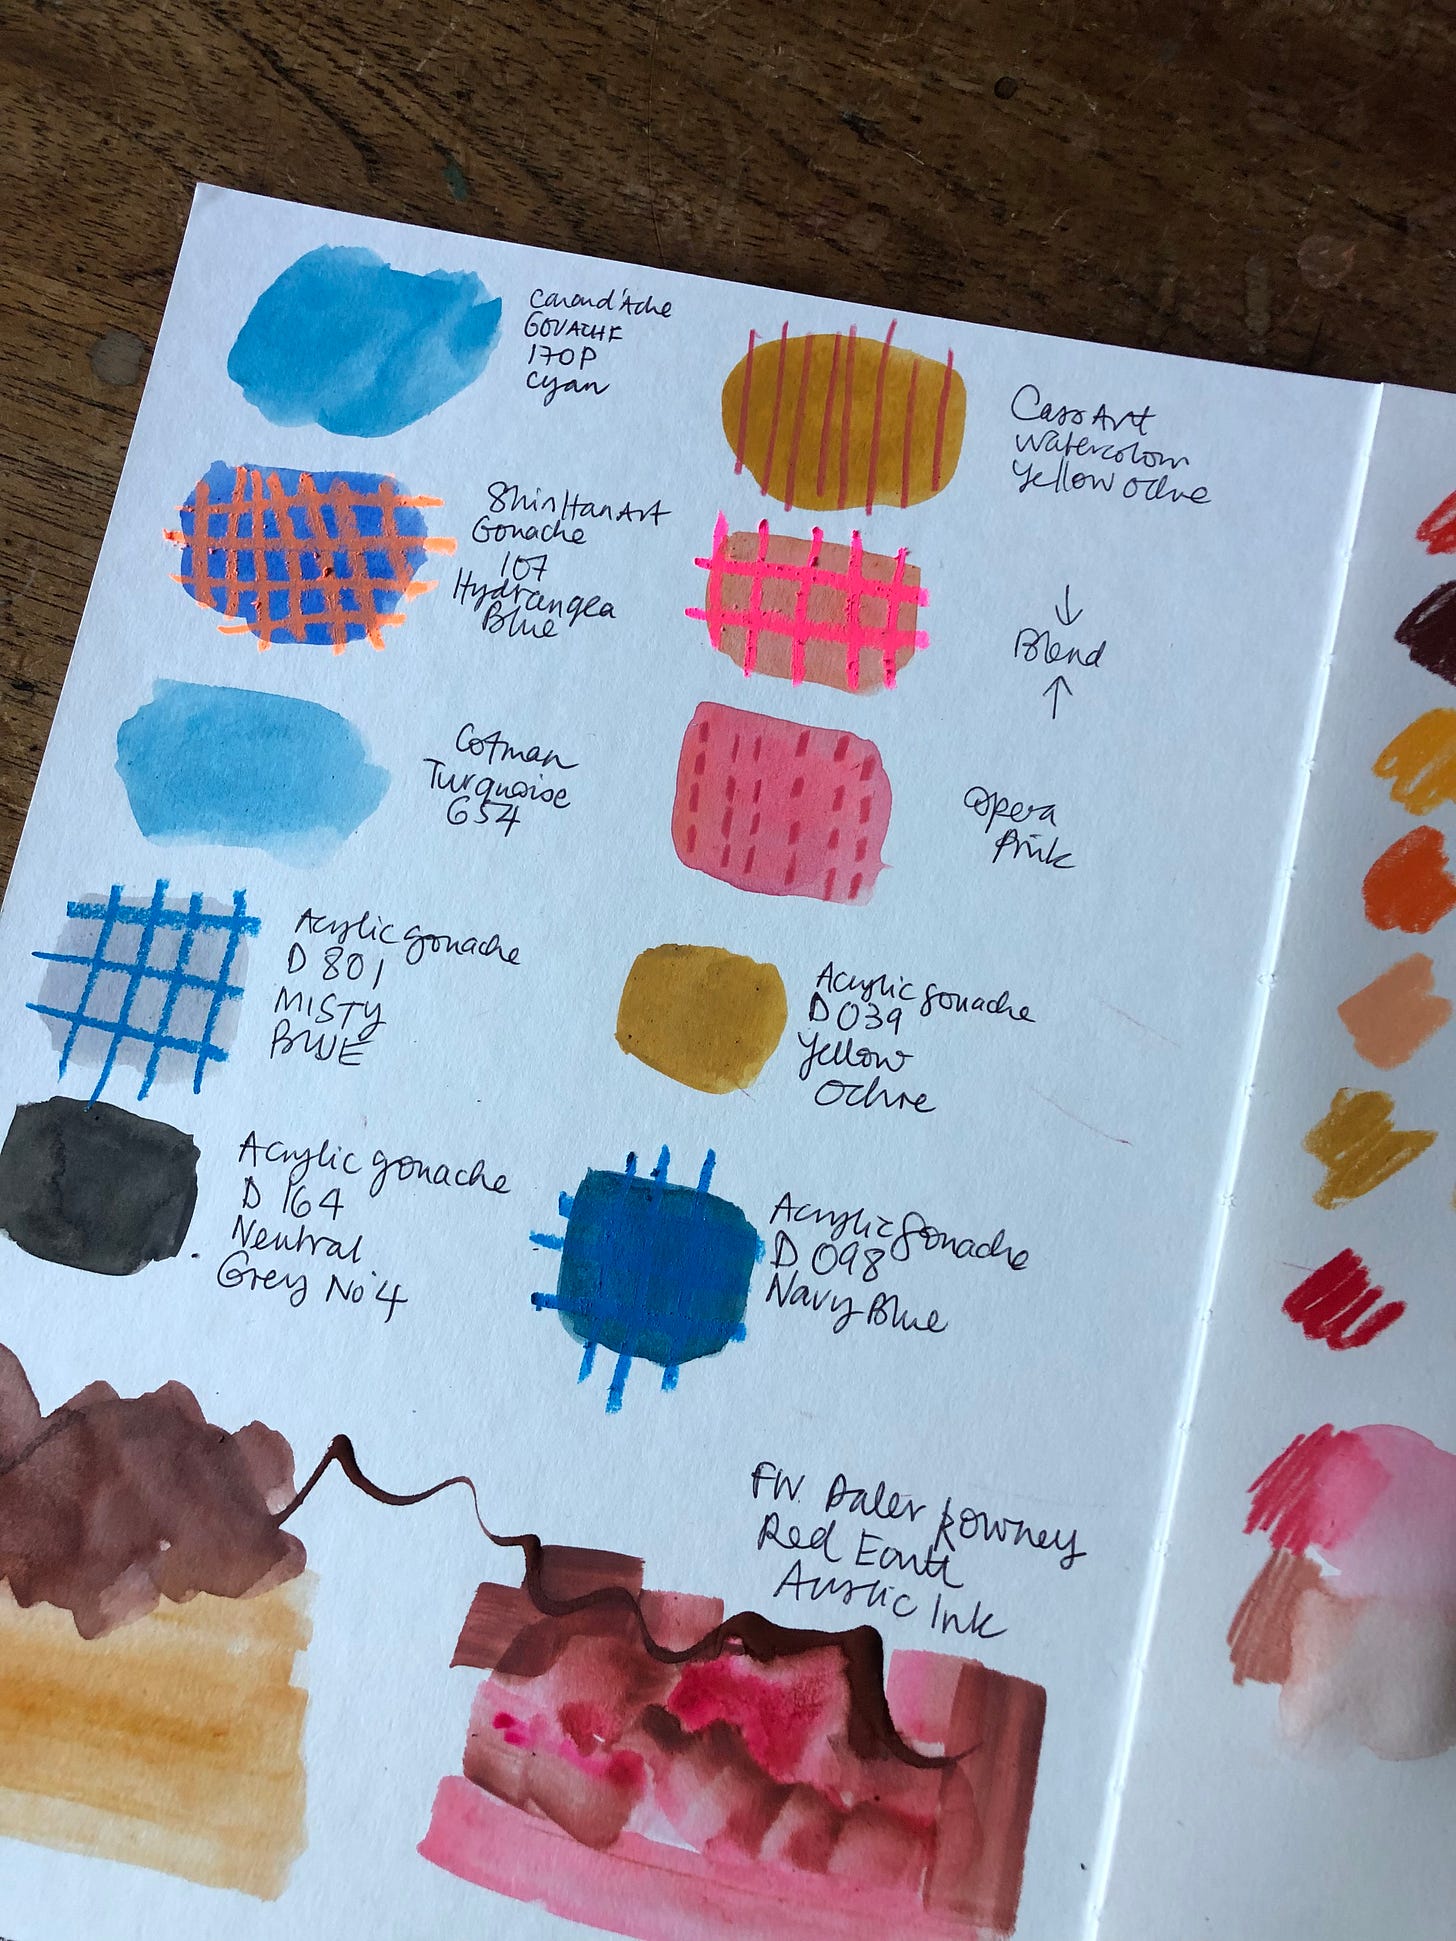 Carand'Ache
GOUACHE
170P
Cyan
Cass Art
Watercolour
Yellow Ochre
ShinHanArt
Gouache
107
Hydrangea
Blue
↓
Blend
↑
Cotman
Turquoise
654
Opera
Pink
Acrylic gouache
D 801
MISTY
BLUE
Acrylic gouache
D 039
Yellow
Ochre
Acrylic gouache
D 164
Neutral
Grey No 4
Acrylic Gouache
D 098
Navy Blue
FW. Daler Rowney
Red Earth
Acrylic Ink